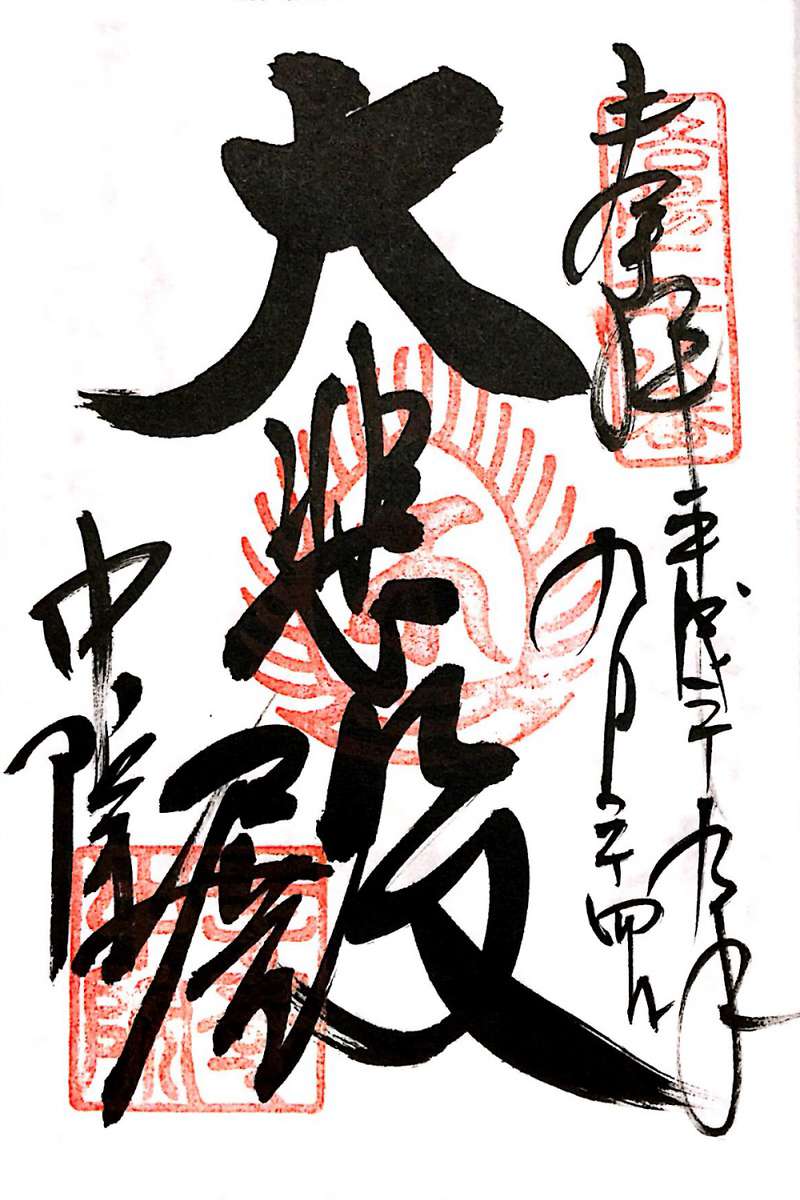 奉拝
平成二十九年
九月二十四日
大悲殿
中院